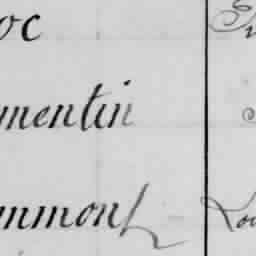 oc
mentin
mmont